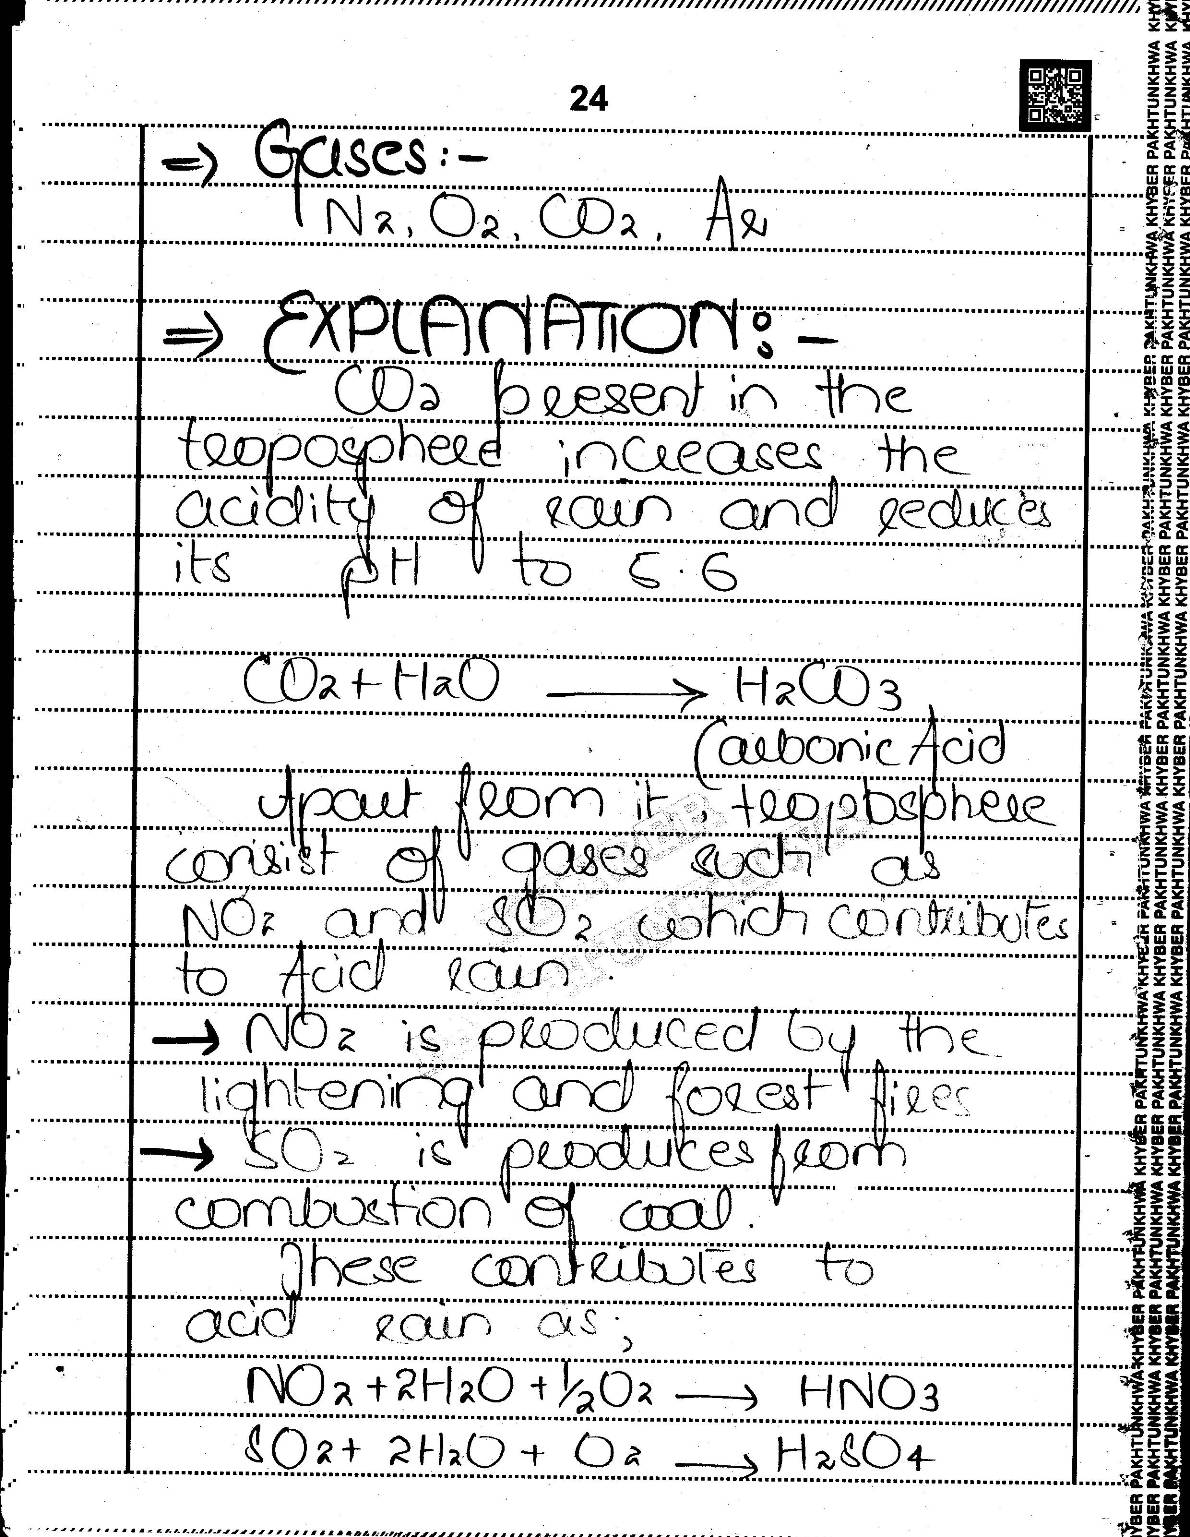 24
⇒ Gases:-
N2, O2, CO2, Ar
⇒ EXPLANATION:-
CO2 present in the
troposphere increases the
acidity of rain and reduces
its pH to 5.6
CO2 + H2O ⟶ H2CO3
(Carbonic Acid
Apart from it, tropopsphere
consist of gases such as
NO2 and SO2 which contributes
to Acid rain.
→ NO2 is produced by the
lightening and forest fires
→ SO2 is produces from
combustion of coal.
These contributes to
acid rain as;
NO2 + 2H2O + 1/2O2 ⟶ HNO3
SO2 + 2H2O + O2 ⟶ H2SO4
KHYBER PAKHTUNKHWA KHYBER PAKHTUNKHWA KHYBER PAKHTUNKHWA